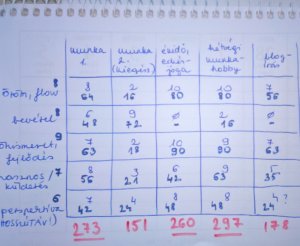 munka 1. munka 2. (kiegész) éneklő, edzés- jóga hétvégi munka- hobby blog- írás
8
öröm, flow 8 64 2 16 10 80 10 80 7 56
8
bevétel 6 48 9 72 ø 2 16 ø
9
önismeret, fejlődés 7 63 2 18 10 90 9 63
hasznos/ küldetés 7 8 56 3 21 6 42 9 63 5 35
6
perspektíva (hosszútáv!) 7 42 4 24 8 48 8 48 4? 24
273 151 260 297 178